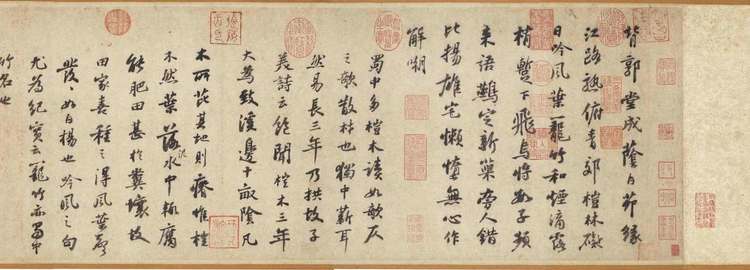 背郭堂成蔭白茆緣
江路熟俯青郊榿林礙
日吟風葉籠竹和煙滴露
梢暫下飛烏將數子頻
來語鷰定新巢旁人錯
比揚雄宅懶惰無心作
解嘲
蜀中多榿木讀如欹仄
之欹散材也獨中薪耳
然易長三年乃拱故子
美詩云飽聞榿木三年
大為致溪邊十畝陰凡
木所芘其地則瘠惟榿
不然葉落水中輒腐
能肥田甚於糞壤故
田家喜種之得風葉聲
發發如白楊也吟風之句
尤為紀實云籠竹亦蜀中
竹名也